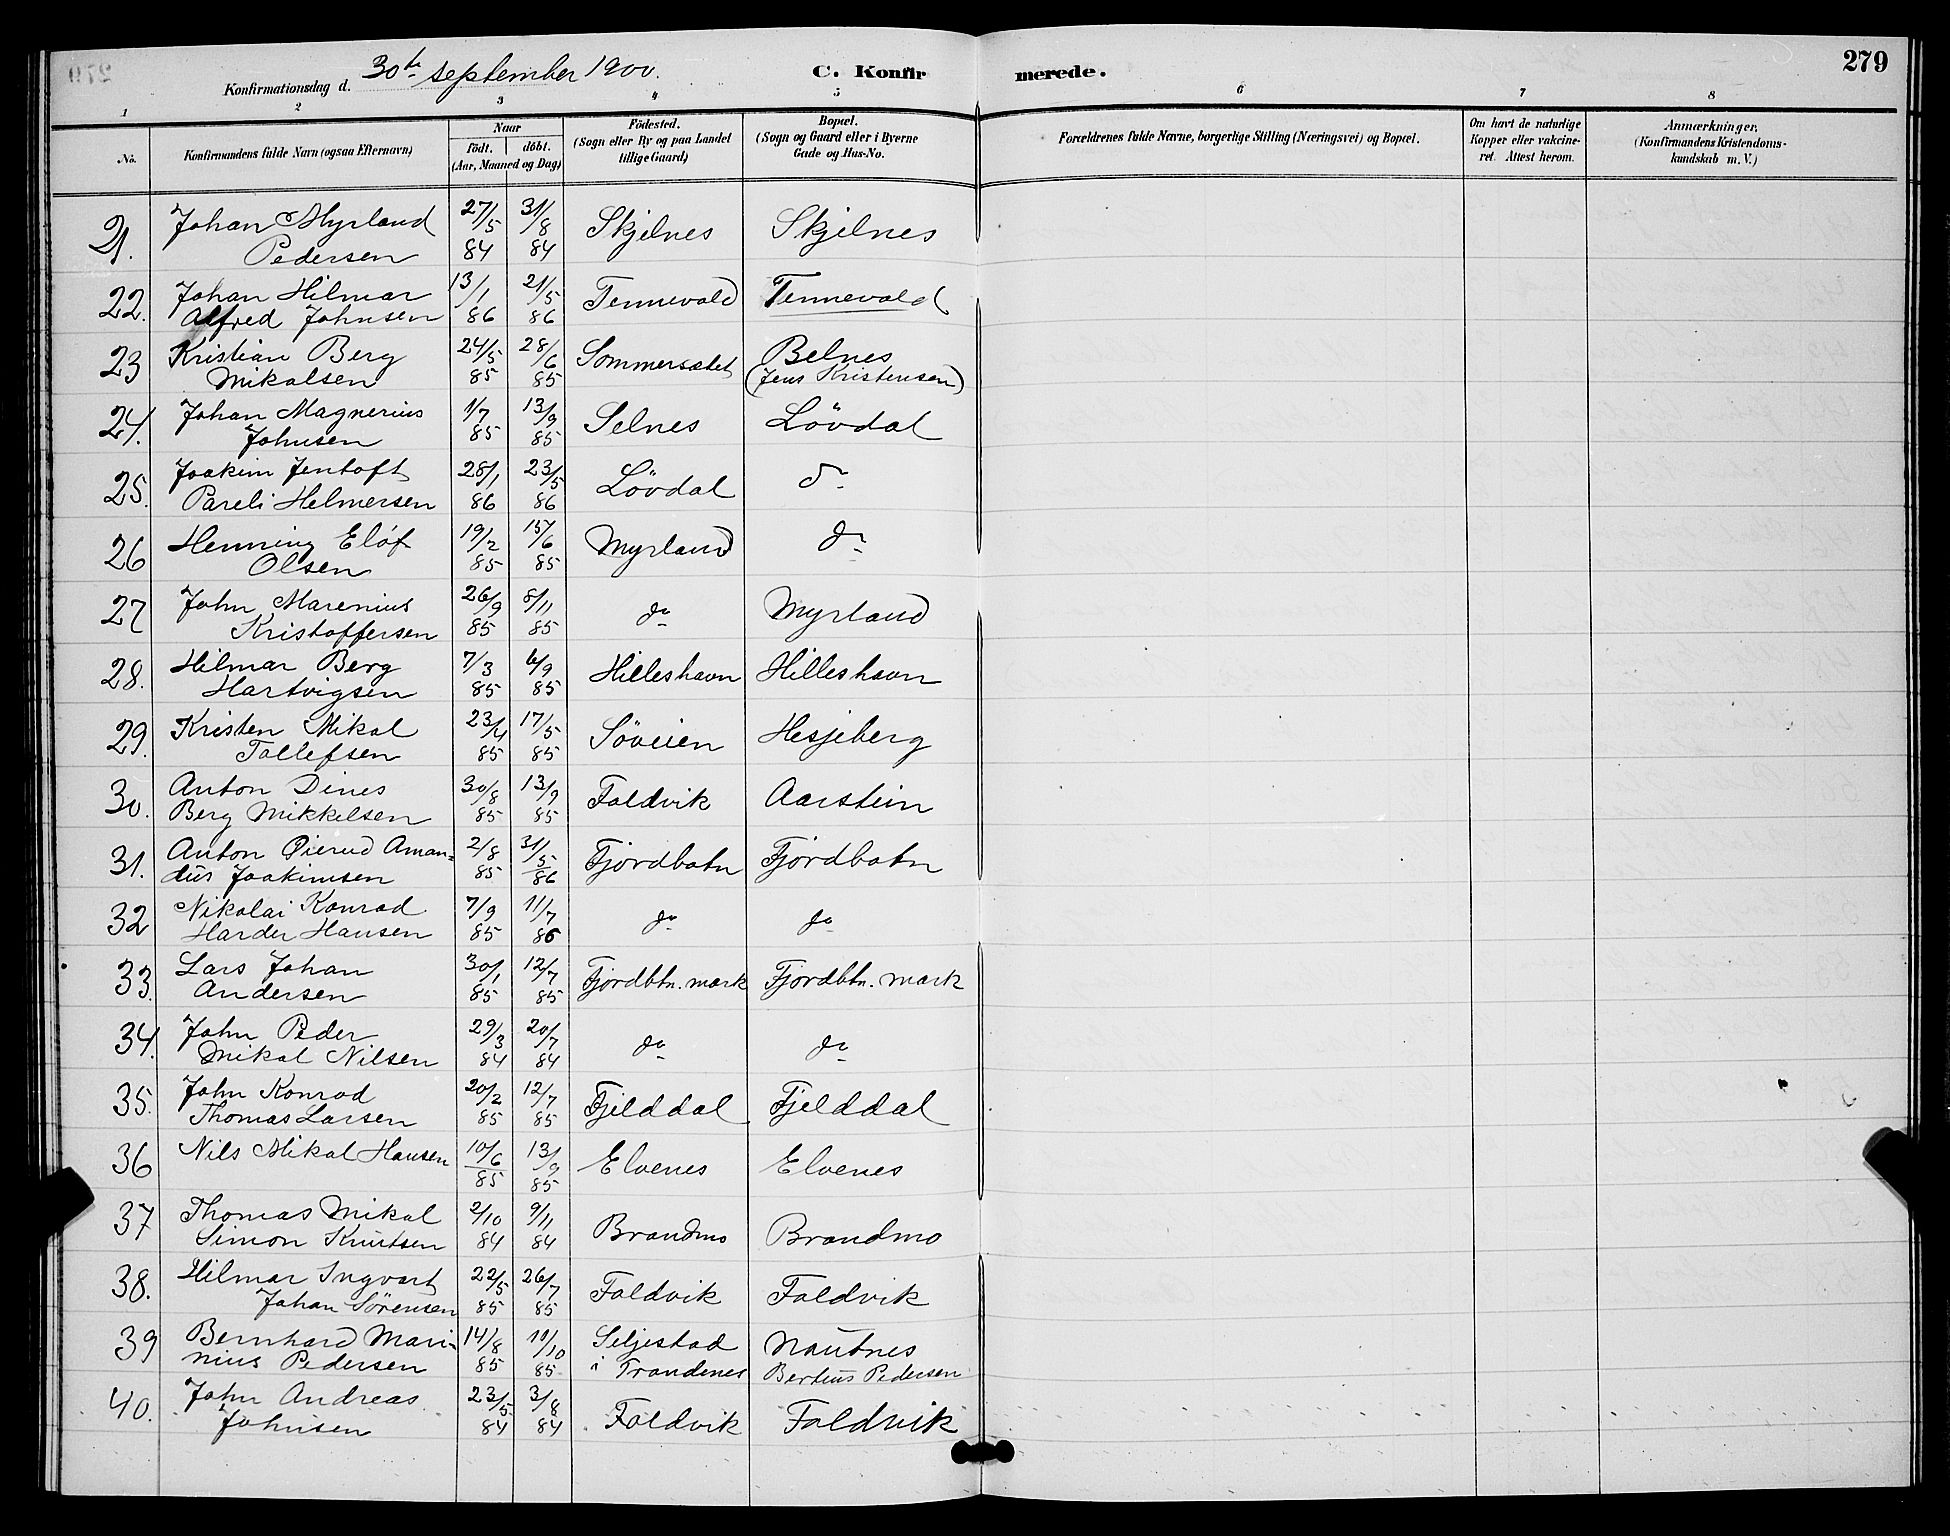 279
Konfirmationsdag d. 30te september 1900.
C. Konfirmerede.
1 2 3 4 5 6 7 8
No.
Konfirmandens fulde Navn (ogsaa Efternavn)
Naar
födt. döbt.
(Aar, Maaned og Dag)
Födested.
(Sogn eller By og paa Landet
tillige Gaard)
Bopæl.
(Sogn og Gaard eller i Byerne
Gade og Hus-No.
Forældrenes fulde Navne, borgerlige Stilling (Næringsvei) og Bopæl.
Om havt de naturlige
Kopper eller vakcine-
ret. Attest herom.
Anmærkninger.
(Konfirmandens Kristendoms-
kundskab m. V.)
21. Johan Myrland 27/5 31/8 Skjelnes Skjelnes
Pedersen 84 84
22. Johan Hilmar 13/1 21/5 Tennevold Tennevold
Alfred Johnsen 86 86
23 Kristian Berg 24/5 28/6 Sommersætet Belnes
Mikalsen 85 85 (Jens Kristensen)
24. Johan Magnerius 1/7 13/9 Selnes Lövdal
Johnsen 85 85
25. Joakim Jentoft 28/1 23/5 Lövdal do
Pareli Helmersen 86 86
26 Henning Elöf 19/2 15/6 Myrland do
Olsen 85 85
27 John Marenius 26/9 8/11 do Myrland
Kristoffersen 85 85
28. Hilmar Berg 7/3 6/9 Hilleshavn Hilleshavn
Hartvigsen 85 85
29. Kristen Mikal 23/4 17/5 Söveien Hesjeberg
Tollefsen 85 85
30. Anton Dines 30/8 13/9 Foldvik Aarstein
Berg Mikkelsen 85 85
31. Anton Øierud Aman- 2/8 31/5 Fjordbotn Fjordbotn
dus Joakimsen 85 86
32 Nikolai Konrad 7/9 11/7 do do
Harder Hansen 85 86
33. Lars Johan 30/1 12/7 Fjordbtn. mark Fjordbtn. mark
Andersen 85 85
34. John Peder 29/3 20/7 do do
Mikal Nilsen 84 84
35. John Konrad 20/2 12/7 Fjelddal Fjelddal
Thomas Larsen 85 85
36 Nils Mikal Hansen 10/6 13/9 Elvenes Elvenes
85 85
37 Thomas Mikal 2/10 9/11 Brandmo Brandmo
Simon Knutsen 84 84
38. Hilmar Ingvart 22/5 26/7 Foldvik Foldvik
Johan Sörensen 85 85
39 Bernhard Mari- 14/8 11/10 Seljestad Nautnes
nius Pedersen 85 85 i Trondenes Berteus Pedersen
40. John Andreas 23/5 3/8 Foldvik Foldvik
Johnsen 84 84